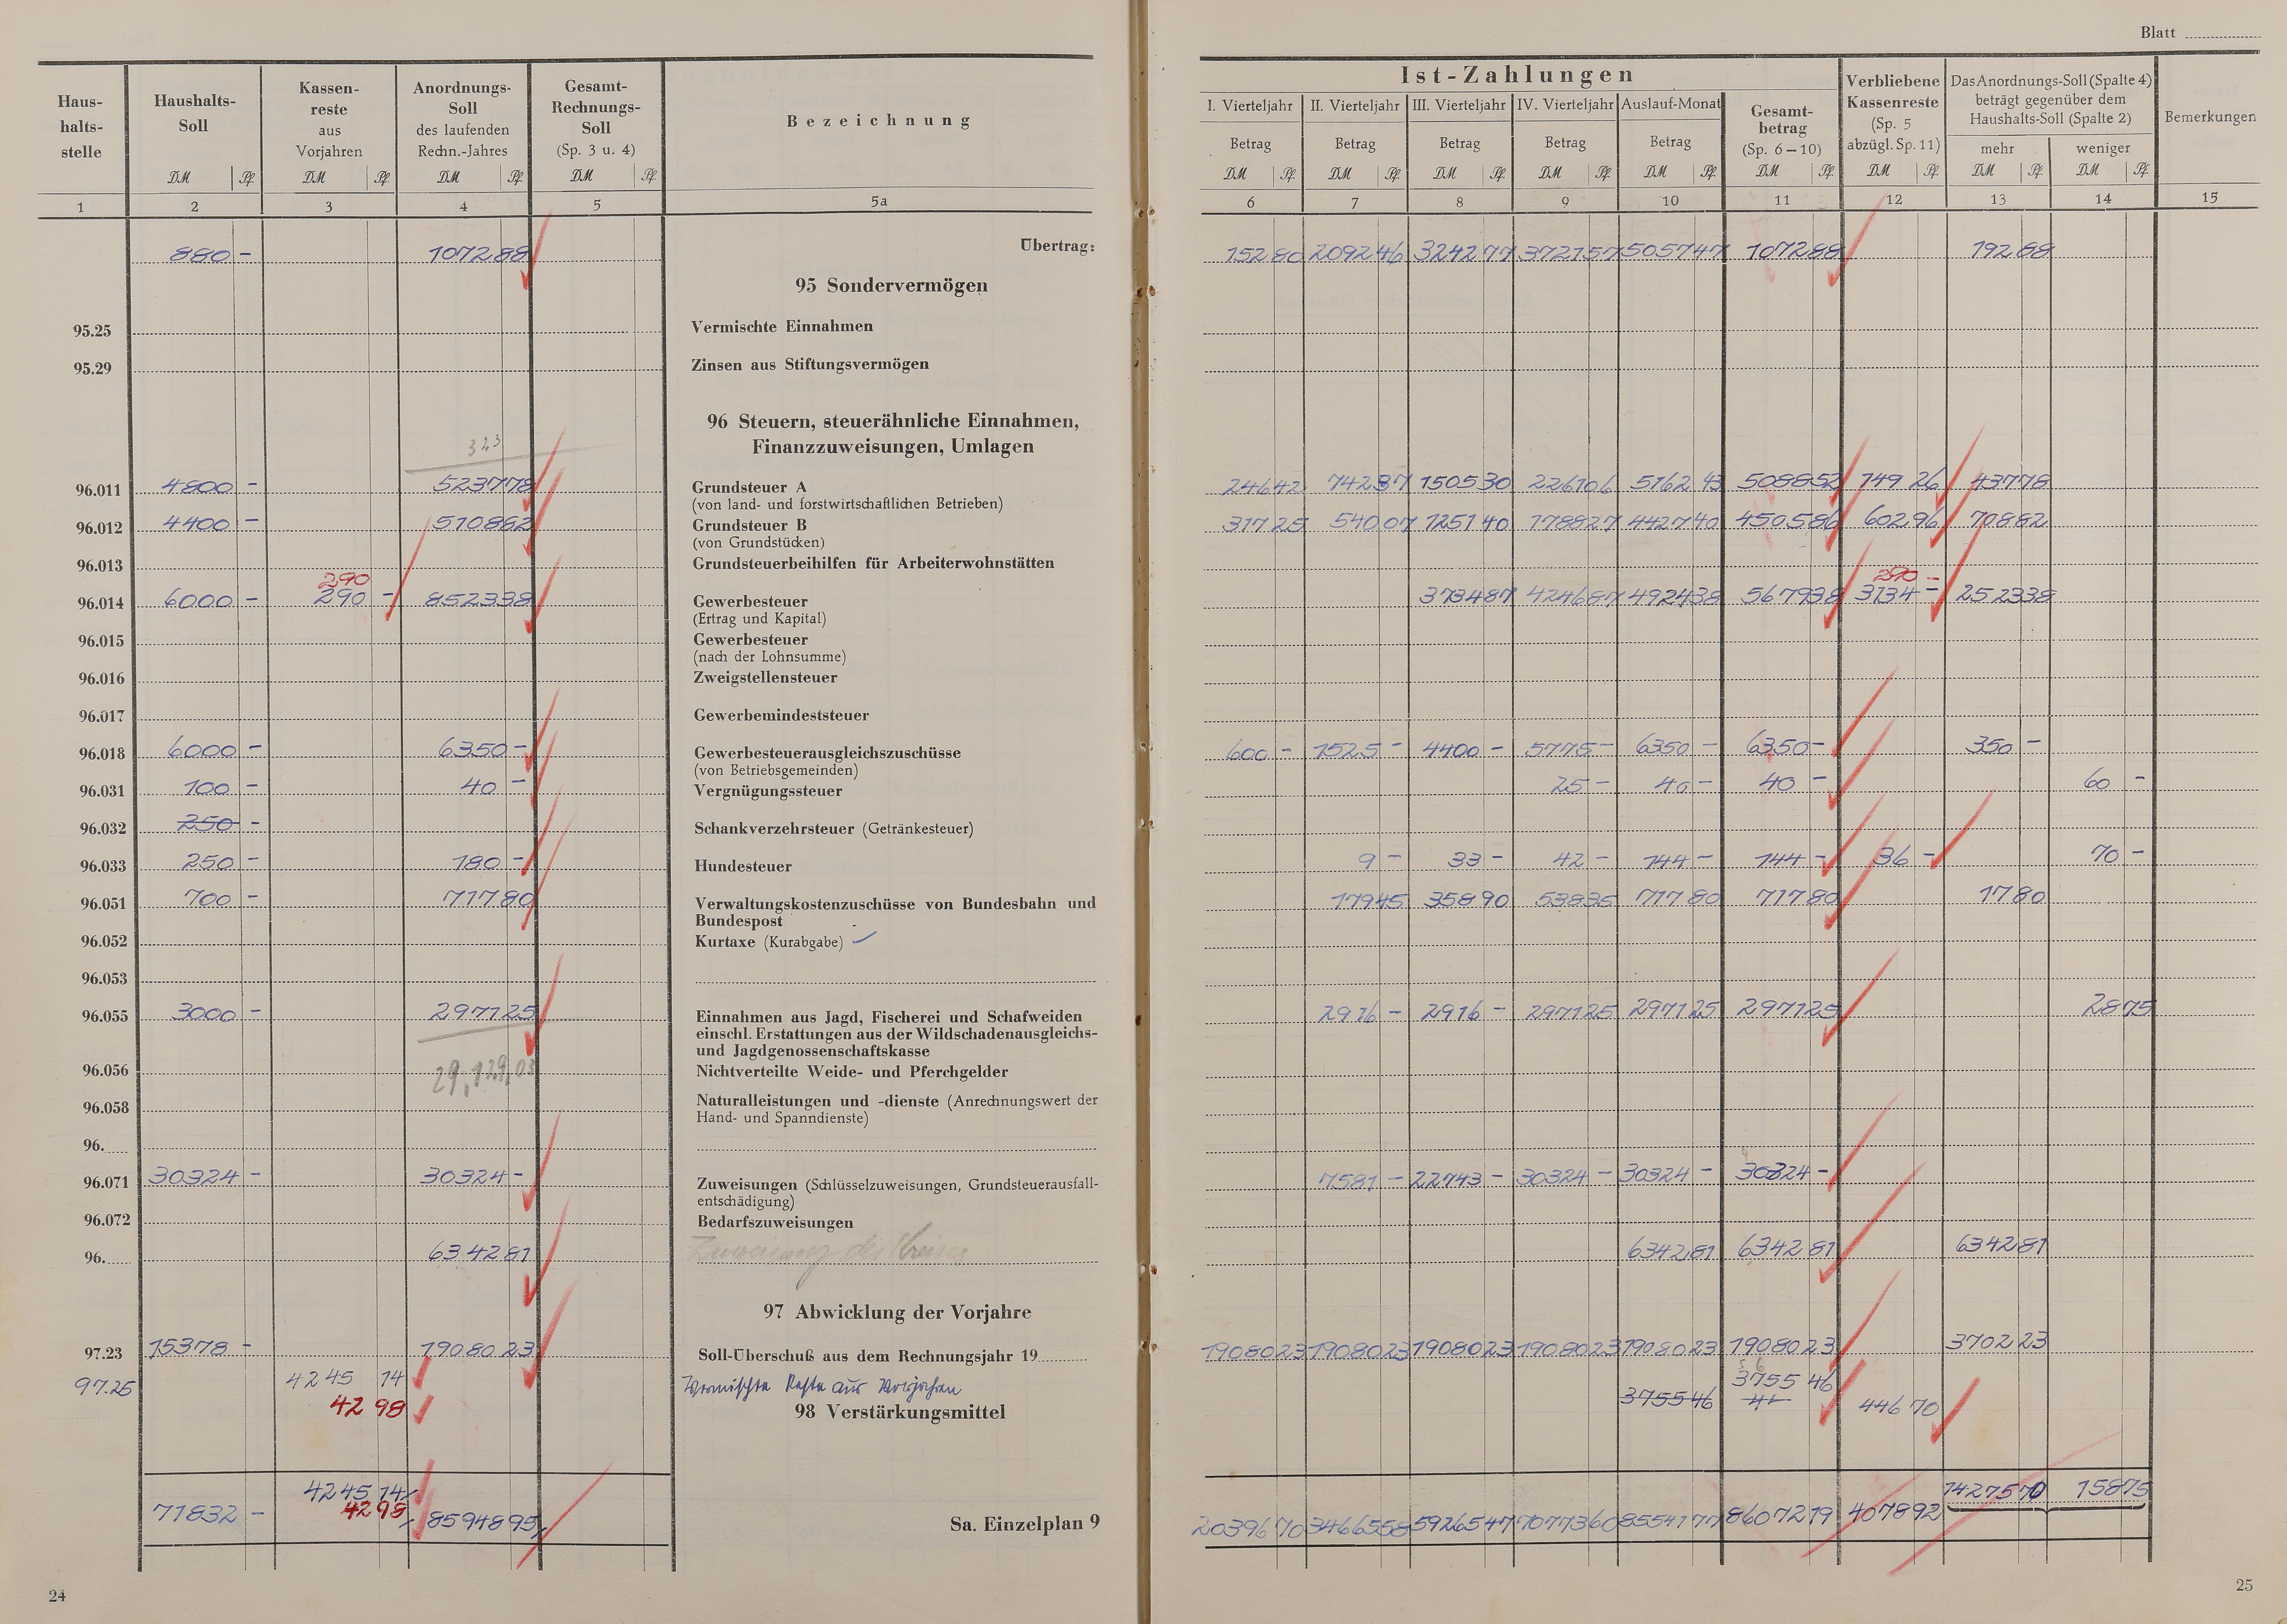 Blatt
Haus-
halts-
stelle
Haushalts-
Soll
Kassen-
reste
aus
Vorjahren
Anordnungs-
Soll
des laufenden
Rechn.-Jahres
Gesamt-
Rechnungs-
Soll
(Sp. 3 u. 4)
Bezeichnung
Ist-Zahlungen
I. Vierteljahr II. Vierteljahr III. Vierteljahr IV. Vierteljahr Auslauf-Monat
Betrag Betrag Betrag Betrag Betrag
Gesamt-
betrag
(Sp. 6–10)
Verbliebene
Kassenreste
(Sp. 5
abzügl. Sp. 11)
Das Anordnungs-Soll (Spalte 4)
beträgt gegenüber dem
Haushalts-Soll (Spalte 2)
mehr weniger
Bemerkungen
DM Pf DM Pf DM Pf DM Pf DM Pf DM Pf DM Pf DM Pf DM Pf DM Pf DM Pf DM Pf DM Pf
1 2 3 4 5 5a 6 7 8 9 10 11 12 13 14 15
880 - 1072 88 Übertrag: 152 80 2092 46 3242 77 3721 57 5057 47 1072 88 192 88
95 Sondervermögen
95.25 Vermischte Einnahmen
95.29 Zinsen aus Stiftungsvermögen
96 Steuern, steuerähnliche Einnahmen,
Finanzzuweisungen, Umlagen
323
96.011 4800 - 5237 78 Grundsteuer A 246 42 742 37 1505 30 2261 06 5162 43 5088 52 149 26 437 78
(von land- und forstwirtschaftlichen Betrieben)
96.012 4400 - 5108 82 Grundsteuer B 317 25 540 07 1251 40 1788 27 4427 40 4505 86 602 96 708 82
(von Grundstücken)
96.013 Grundsteuerbeihilfen für Arbeiterwohnstätten
290 290 -
96.014 6000 - 290 - 8523 38 Gewerbesteuer 3734 87 4246 87 4924 38 5679 38 3134 - 2523 38
(Ertrag und Kapital)
96.015 Gewerbesteuer
(nach der Lohnsumme)
96.016 Zweigstellensteuer
96.017 Gewerbemindeststeuer
96.018 6000 - 6350 - Gewerbesteuerausgleichszuschüsse 600 - 1525 - 4400 - 5775 - 6350 - 6350 - 350 -
(von Betriebsgemeinden)
96.031 100 - 40 - Vergnügungssteuer 25 - 40 - 40 - 60 -
96.032 250 - Schankverzehrsteuer (Getränkesteuer)
96.033 250 - 180 - Hundesteuer 9 - 33 - 42 - 144 - 144 - 36 - 70 -
96.051 700 - 717 80 Verwaltungskostenzuschüsse von Bundesbahn und 179 45 358 90 538 35 717 80 717 80 17 80
Bundespost
96.052 Kurtaxe (Kurabgabe)
96.053
96.055 3000 - 2971 25 Einnahmen aus Jagd, Fischerei und Schafweiden 2916 - 2916 - 2971 25 2971 25 2971 25 28 75
einschl. Erstattungen aus der Wildschadenausgleichs-
und Jagdgenossenschaftskasse
96.056 29.129,03 Nichtverteilte Weide- und Pferchgelder
96.058 Naturalleistungen und -dienste (Anrechnungswert der
Hand- und Spanndienste)
96.
96.071 30324 - 30324 - Zuweisungen (Schlüsselzuweisungen, Grundsteuerausfall- 7581 - 22743 - 30324 - 30324 - 30324 -
entschädigung)
96.072 Bedarfszuweisungen
96. 6342 81 Zuweisung des Kreises 6342 81 6342 81 6342 81
97 Abwicklung der Vorjahre
97.23 15378 - 19080 23 Soll-Überschuß aus dem Rechnungsjahr 19 19080 23 19080 23 19080 23 19080 23 19080 23 19080 23 3702 23
97.25 4245 14 Vermischte Reste aus Vorjahren 3755 46 3755 46 446 70
42 98 98 Verstärkungsmittel
4245 14 14275 70 158 75
71832 - 42 98 85948 95 Sa. Einzelplan 9 20396 70 34665 58 59265 47 70773 60 85541 77 86072 19 4078 92
24
25